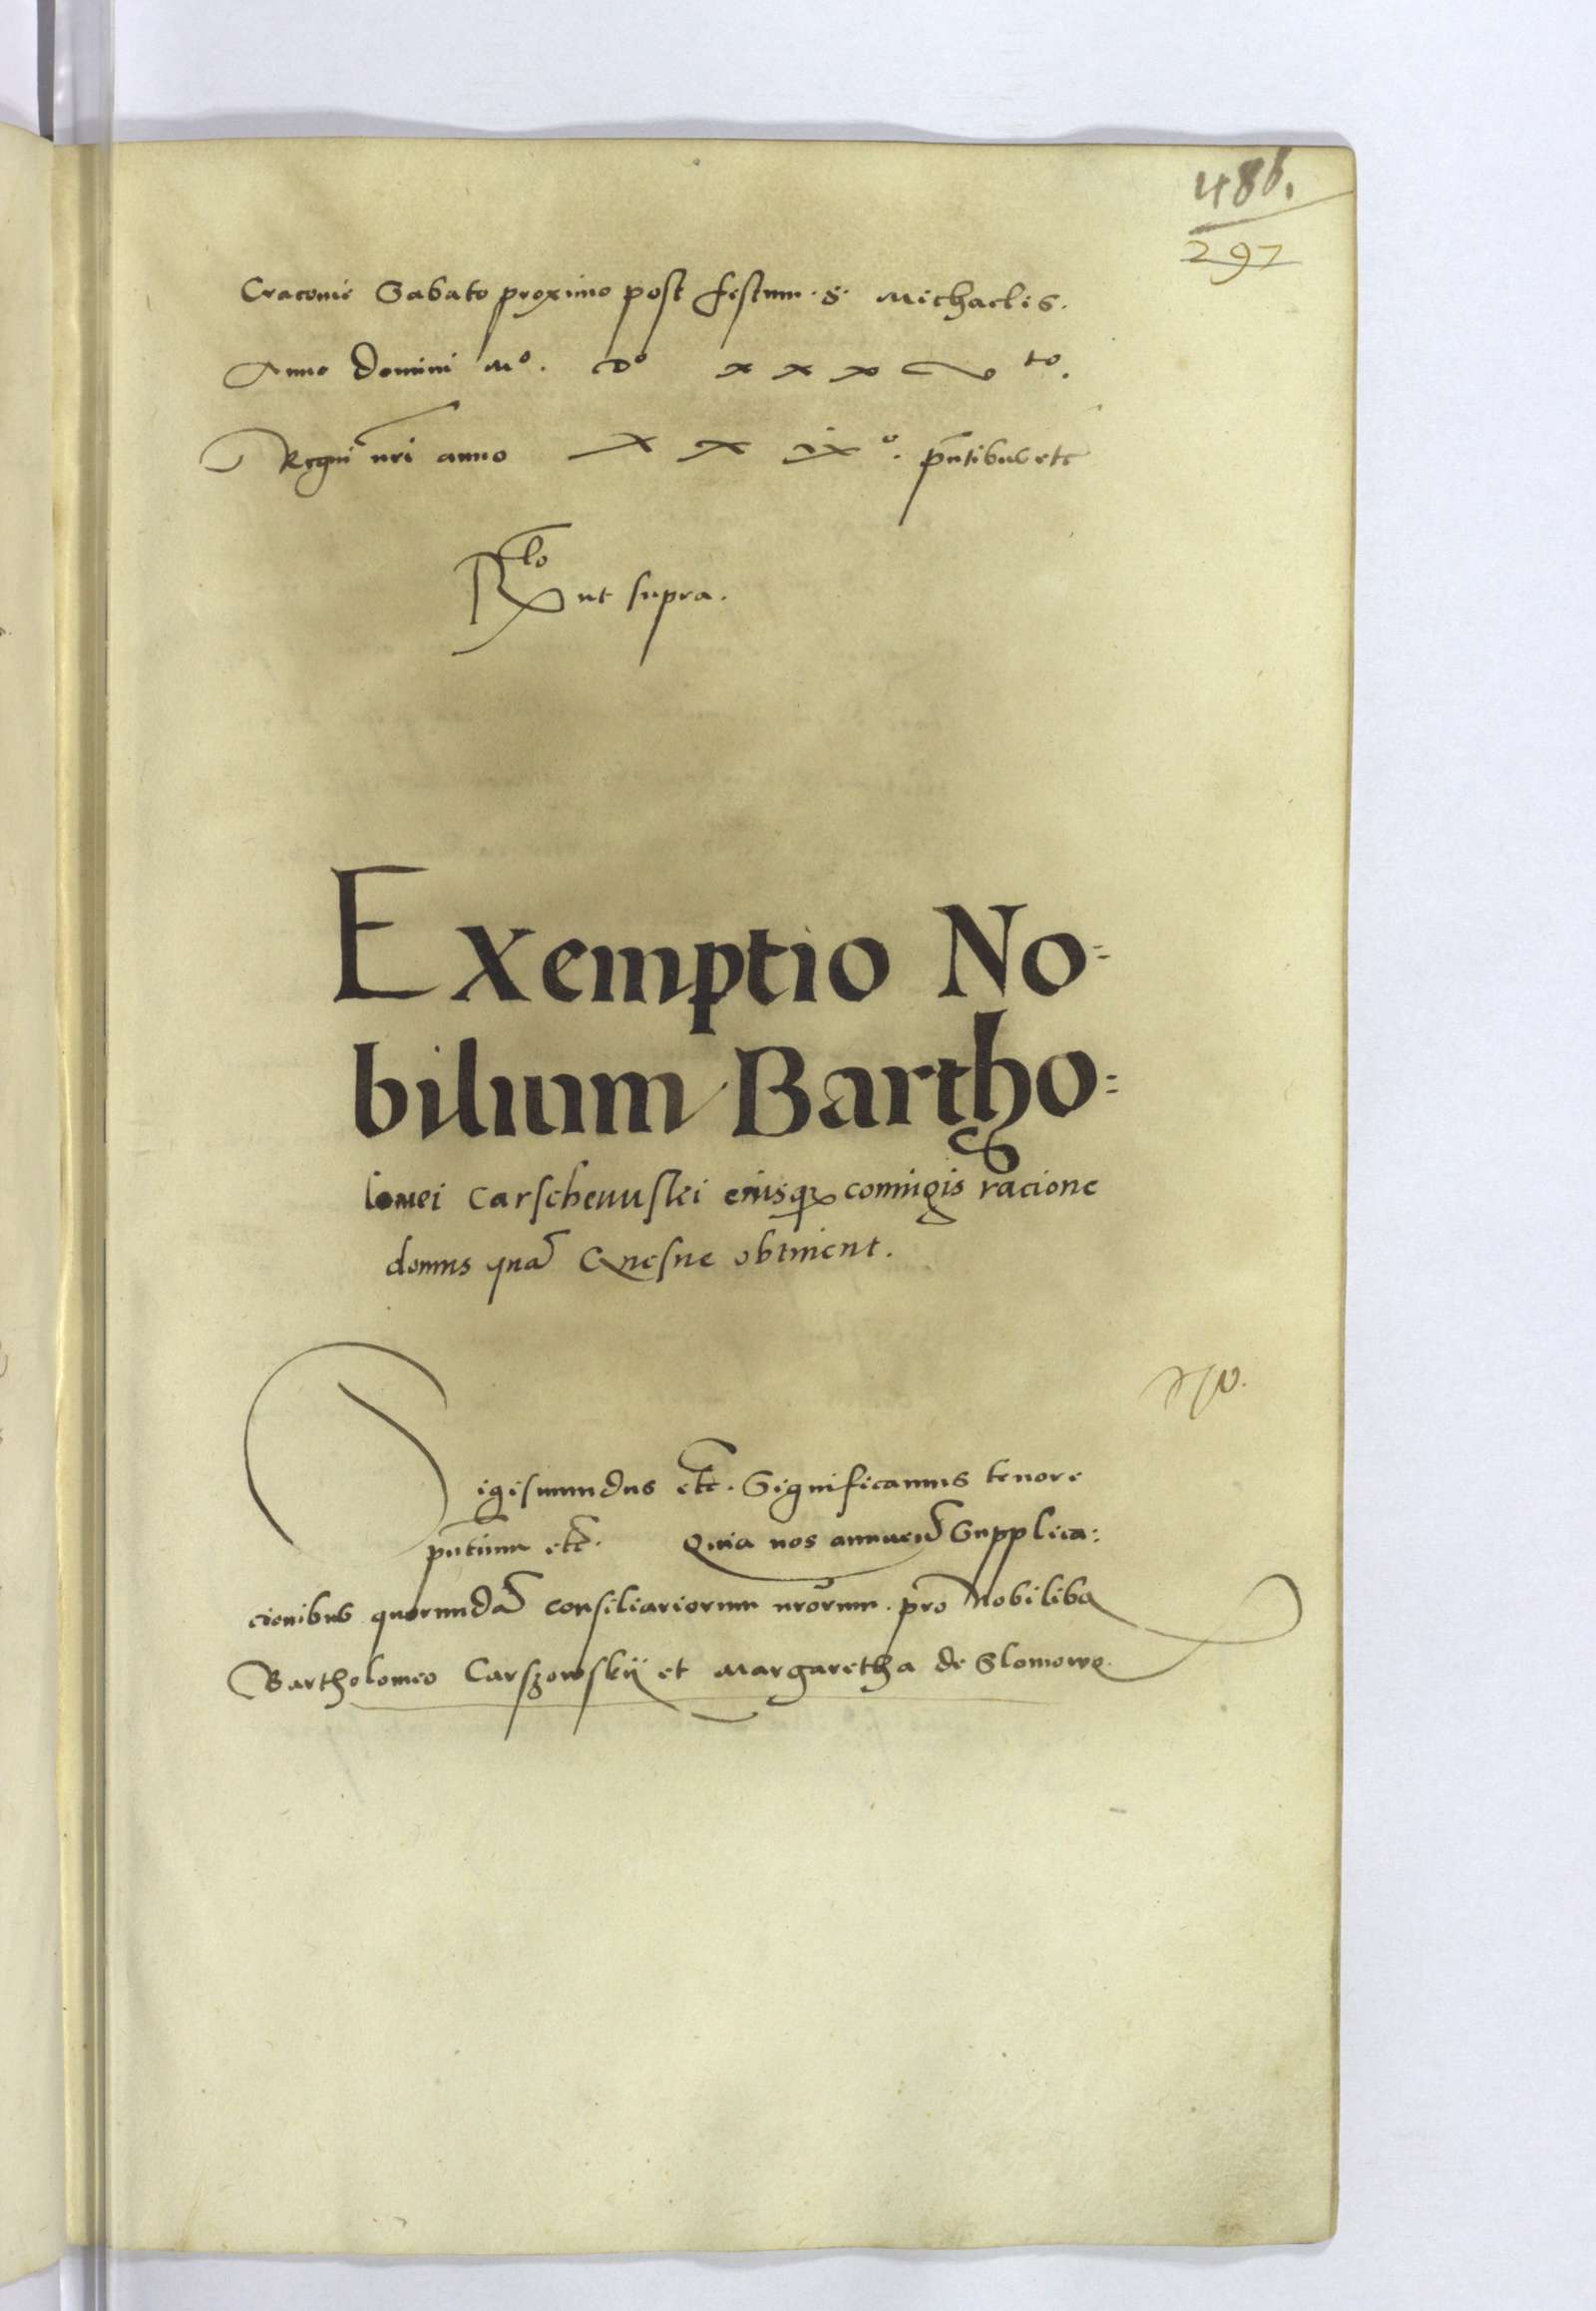 486.
297
Cracovie Sabato proximo post festum . S . Michaelis .
Anno domini Mº . Dº xxxv to .
Regni nri anno xx ixº . pntibus etc
Rlo ut supra .
Exemptio No=
bilium Bartho=
lomei Carschewskei eiusq coniugis racione
domus qua Gnesne obtinent .
Sigismundus etc . Significamus tenore
pntium etc . Quia nos annuen Supplica:
cionibus quorunda consiliariorum nrorum . pro Nobiliba
Bartholomeo Carszowskij et Margaretha de Slomowo